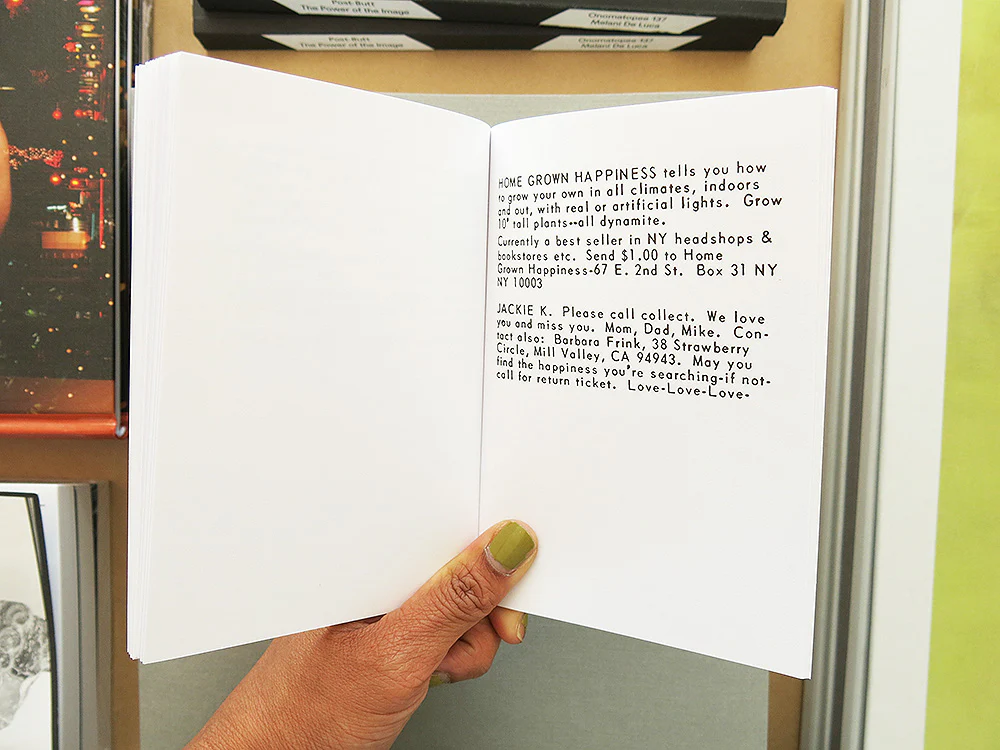 Post-Butt
The Power of the Image
Onomatopee 137
Melani De Luca
Post-Butt
The Power of the Image
Onomatopee 137
Melani De Luca
HOME GROWN HAPPINESS tells you how
to grow your own in all climates, indoors
and out, with real or artificial lights. Grow
10' tall plants--all dynamite.
Currently a best seller in NY headshops &
bookstores etc. Send $1.00 to Home
Grown Happiness-67 E. 2nd St. Box 31 NY
NY 10003
JACKIE K. Please call collect. We love
you and miss you. Mom, Dad, Mike. Con-
tact also: Barbara Frink, 38 Strawberry
Circle, Mill Valley, CA 94943. May you
find the happiness you're searching-if not-
call for return ticket. Love-Love-Love-